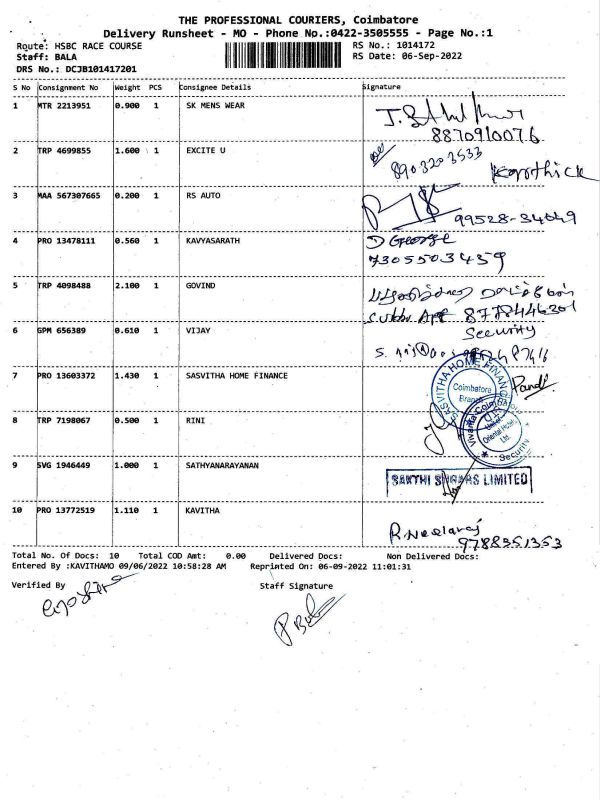 THE PROFESSIONAL COURIERS, Coimbatore
Delivery Runsheet - MO - Phone No.:0422-3505555 - Page No.:1
Route: HSBC RACE COURSE RS No.: 1014172
Staff: BALA RS Date: 06-Sep-2022
DRS No.: DCJB101417201
S No Consignment No Weight PCS Consignee Details Signature
1 MTR 2213951 0.900 1 SK MENS WEAR
8870910076
2 TRP 4699855 1.600 1 EXCITE U
8903203533
Karthick
3 MAA 567307665 0.200 1 RS AUTO
99528-34049
4 PRO 13478111 0.560 1 KAVYASARATH D George
7305503459
5 TRP 4098488 2.100 1 GOVIND
8778446201
Security
6 GPM 656389 0.610 1 VIJAY
7 PRO 13603372 1.430 1 SASVITHA HOME FINANCE
SASVITHA HOME FINANC
Coimbatore
Branch
Pandi
8 TRP 7198067 0.500 1 RINI
Oriental Hotel
Ltd.
Security
9 SVG 1946449 1.000 1 SATHYANARAYANAN
SAKTHI SUGARS LIMITED
10 PRO 13772519 1.110 1 KAVITHA
9788351353
Total No. Of Docs: 10 Total COD Amt: 0.00 Delivered Docs: Non Delivered Docs:
Entered By :KAVITHAMO 09/06/2022 10:58:28 AM Reprinted On: 06-09-2022 11:01:31
Verified By Staff Signature